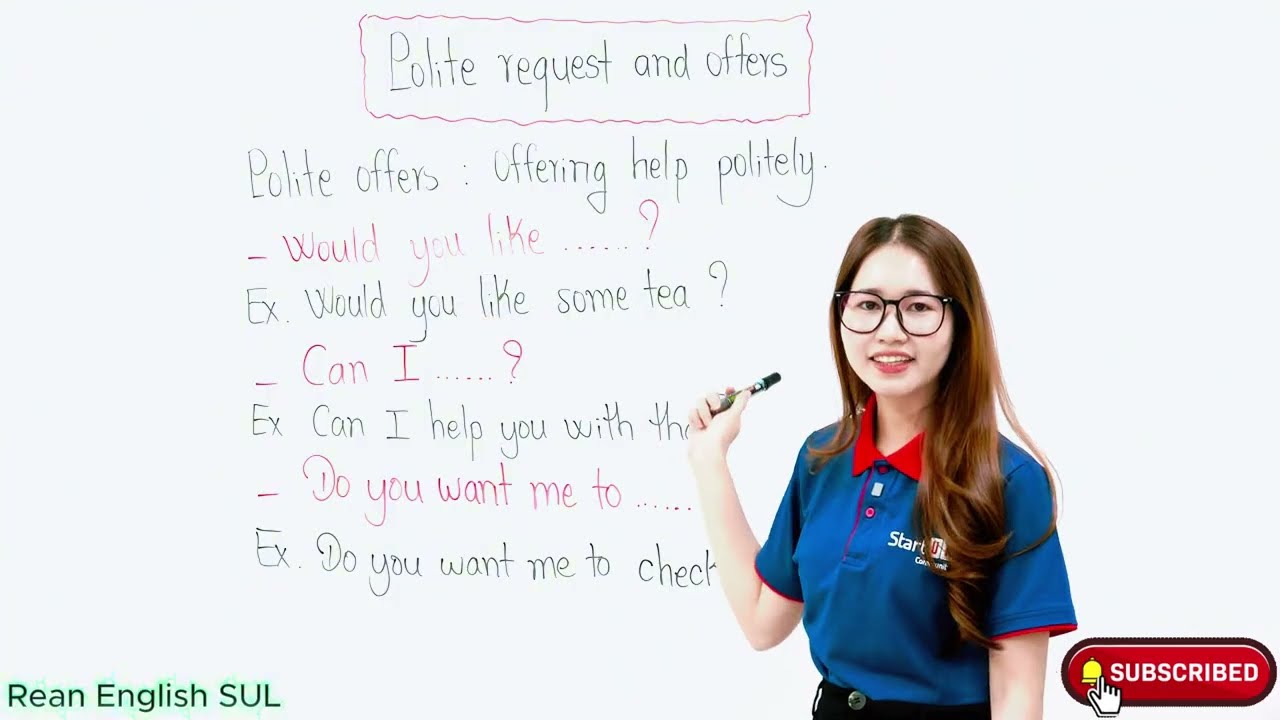 Polite request and offers
Polite offers : Offering help politely.
- Would you like ......?
Ex. Would you like some tea ?
- Can I ......?
Ex Can I help you with
- Do you want me to ......
Ex. Do you want me to check
Start
SUBSCRIBED
Rean English SUL